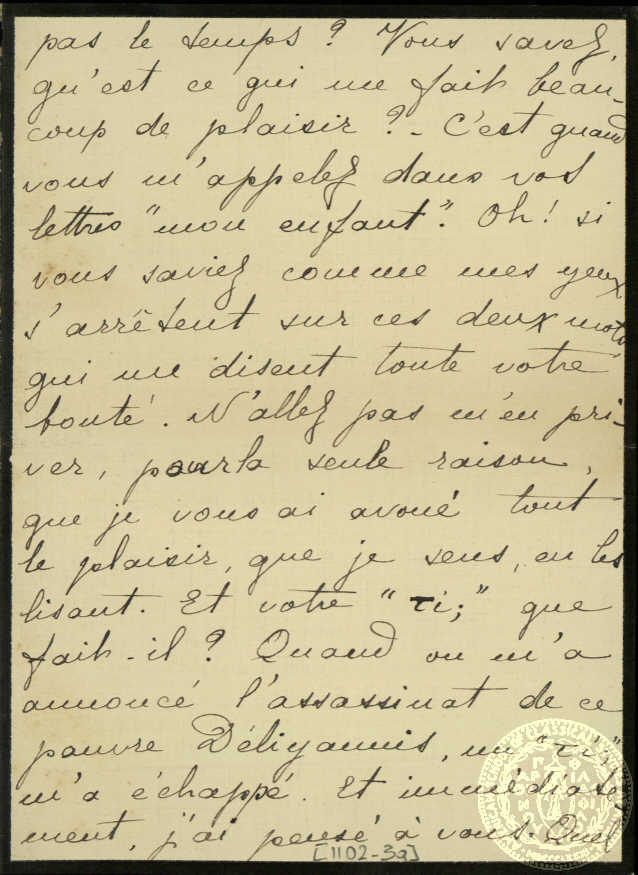 pas le temps? Vous savez,
qu'est ce qui me fait beau-
coup de plaisir? - C'est quand
vous m'appelez dans vos
lettres "mon enfant". Oh! si
vous saviez comme mes yeux
s'arrêtent sur ces deux mots
qui me disent toute votre
bonté. N'allez pas m'en pri-
ver, pour la seule raison,
que je vous ai avoué tout
le plaisir, que je sens, en les
lisant. Et votre "τί;" que
fait-il? Quand on m'a
annoncé l'assassinat de ce
pauvre Déliyannis, un "τί;"
m'a échappé. Et immédiate-
ment, j'ai pensé à vous. Quel
[1102-3a]